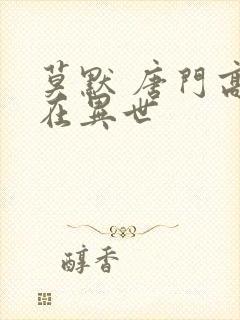 莫默 唐門高
在異世
醇香